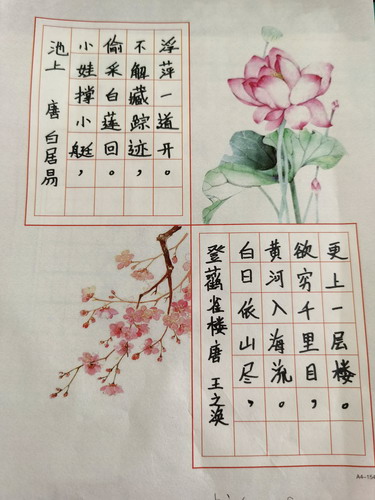 池上 唐 白居易
小娃撑小艇，
偷采白莲回。
不解藏踪迹，
浮萍一道开。
登鹳雀楼唐 王之涣
白日依山尽，
黄河入海流。
欲穷千里目，
更上一层楼。
A4-154